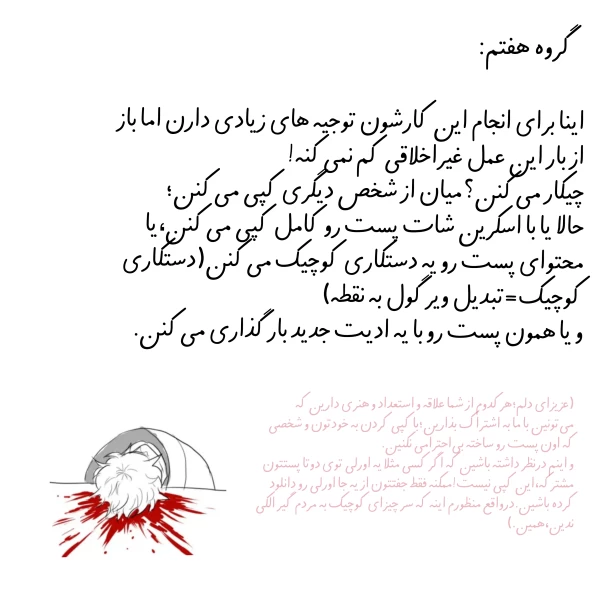 گروه هفتم:
اینا برای انجام این کارشون توجیه های زیادی دارن اما باز
از بار این عمل غیراخلاقی کم نمی کنه!
چیکار می کنن؟ میان از شخص دیگری کپی می کنن؛
حالا یا با اسکرین شات پست رو کامل کپی می کنن، یا
محتوای پست رو یه دستکاری کوچیک می کنن(دستکاری
کوچیک=تبدیل ویرگول به نقطه)
و یا همون پست رو با یه ادیت جدید بارگذاری می کنن.
(عزیزای دلم؛هر کدوم از شما علاقه و استعداد و هنری دارین که
می تونین با ما به اشتراک بذارین؛با کپی کردن به خودتون و شخصی
که اون پست رو ساخته بی احترامی نکنین.
و اینم درنظر داشته باشین که اگر کسی مثلا یه اورلی توی دوتا پستتون
مشترکه،این کپی نیست!ممکنه فقط جفتتون از یه جا اورلی رو دانلود
کرده باشین.درواقع منظورم اینه که سر چیزای کوچیک به مردم گیر الکی
ندین،همین.)